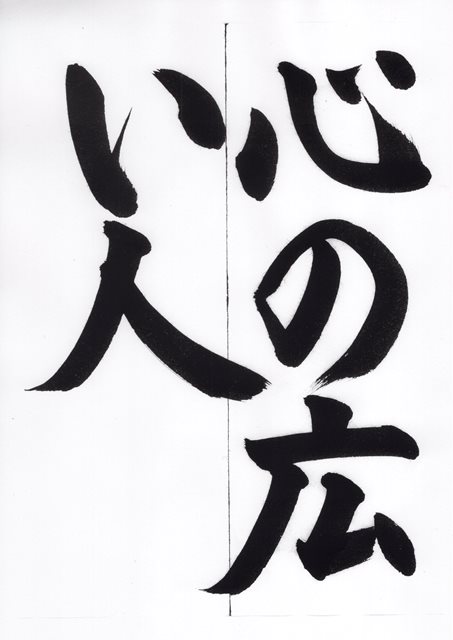 心の広
い人